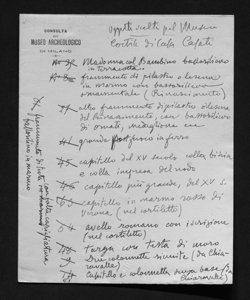 CONSULTA
DEL
MUSEO ARCHEOLOGICO
DI MILANO
Oggetti scelti pel Museo
Cortile di Casa
Madonna col Bambino bassorilievo
in terracotta
frammento di pilastro o lesena
in marmo con bassorilievo
ornamentale (Rinascimento)
altro frammento di pilastro o lesena
del Rinascimento, con bassorilievo
di ornati, medaglione ecc
44 grande in ferro
45 capitello del XV secolo colla biscia
e colla impresa del nodo
46 capitello più grande, del XV s.
capitello in marmo rosso di
Verona (nel cortiletto)
avello romano con iscrizione
(nel cortiletto)
Targa con testa di moro
Due colonnette riunite (da Chia-
ravalle)
Capitello e colonnetta senza base (da
Chiaravalle)
frammento di
con capigliatura
bassorilievo in marmo